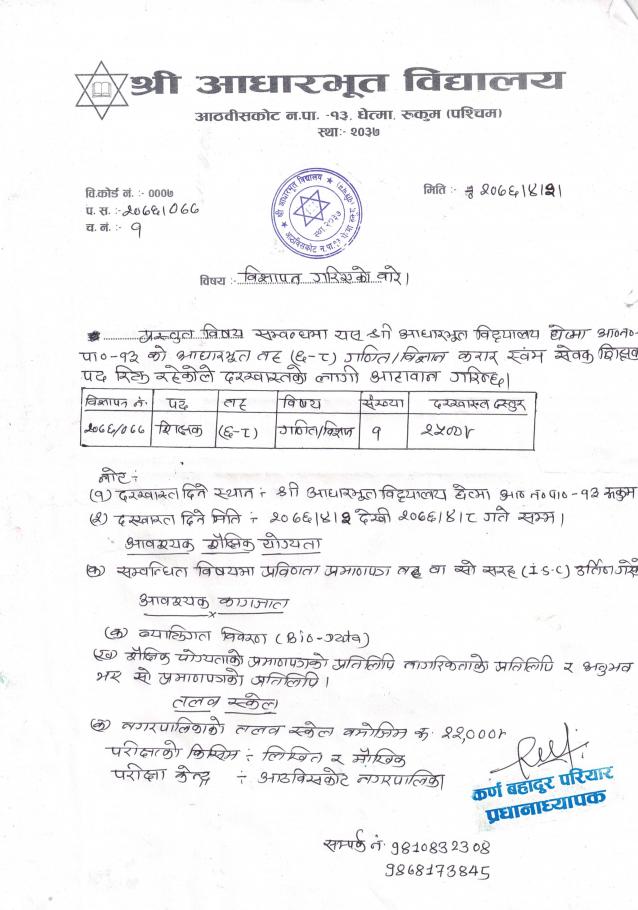 श्री आधारभूत विद्यालय
आठवीसकोट न.पा. -१३, घेत्मा, रुकुम (पश्चिम)
स्था:- २०३७
वि.कोर्ड नं. :- 0007
मिति :- २०७६।४।२।
प. स. :- २०७६।०७७
च. नं. :- १
श्री आधारभूत विद्यालय
स्था २०३७
विषय :- विज्ञापन गरिएको बारे।
प्रस्तुत विषय सम्बन्धमा यस श्री आधारभूत विद्यालय घेत्मा आ०न०
पा०-१३ को आधारभूत तह (६-८) गणित/विज्ञान करार स्वंम सेवक शिक्षक
पद रिक्त रहेकोले दरखास्तको लागी आहावान गरिन्छ।
विज्ञापन नं. पद तह विषय संख्या दरखास्त दस्तुर
२०७६/०७७ शिक्षक (६-८) गणित/विज्ञान १ २५००।
नोट :-
(१) दरखास्त दिने स्थान :- श्री आधारभूत विद्यालय घेत्मा आठ न० पा० -१३ रुकुम
(२) दरखास्त दिने मिति :- २०७६।४।२ देखी २०७६।४।८ गते सम्म।
आवश्यक शैक्षिक योग्यता
(क) सम्बन्धित विषयमा प्रविणता प्रमाणपत्र तह वा सो सरह (I.S.C) उर्तिण गरेको
आवश्यक कागजात
(क) व्यक्तिगत विवरण (Bio-data)
(ख) शैक्षिक योग्यताको प्रमाणपत्रको प्रतिलिपि नागरिकताको प्रतिलिपि र अनुभव
भए सो प्रमाणपत्रको प्रतिलिपि।
तलव स्केल
(क) नगरपालिकाको तलव स्केल बमोजिम रु. २२,०००।
परीक्षाको किसिम :- लिखित र मौखिक
परीक्षा केन्द्र :- आठबिसकोट नगरपालिका
कर्ण बहादुर परियार
प्रधानाध्यापक
सम्पर्क नं. 9810832308
9868173845